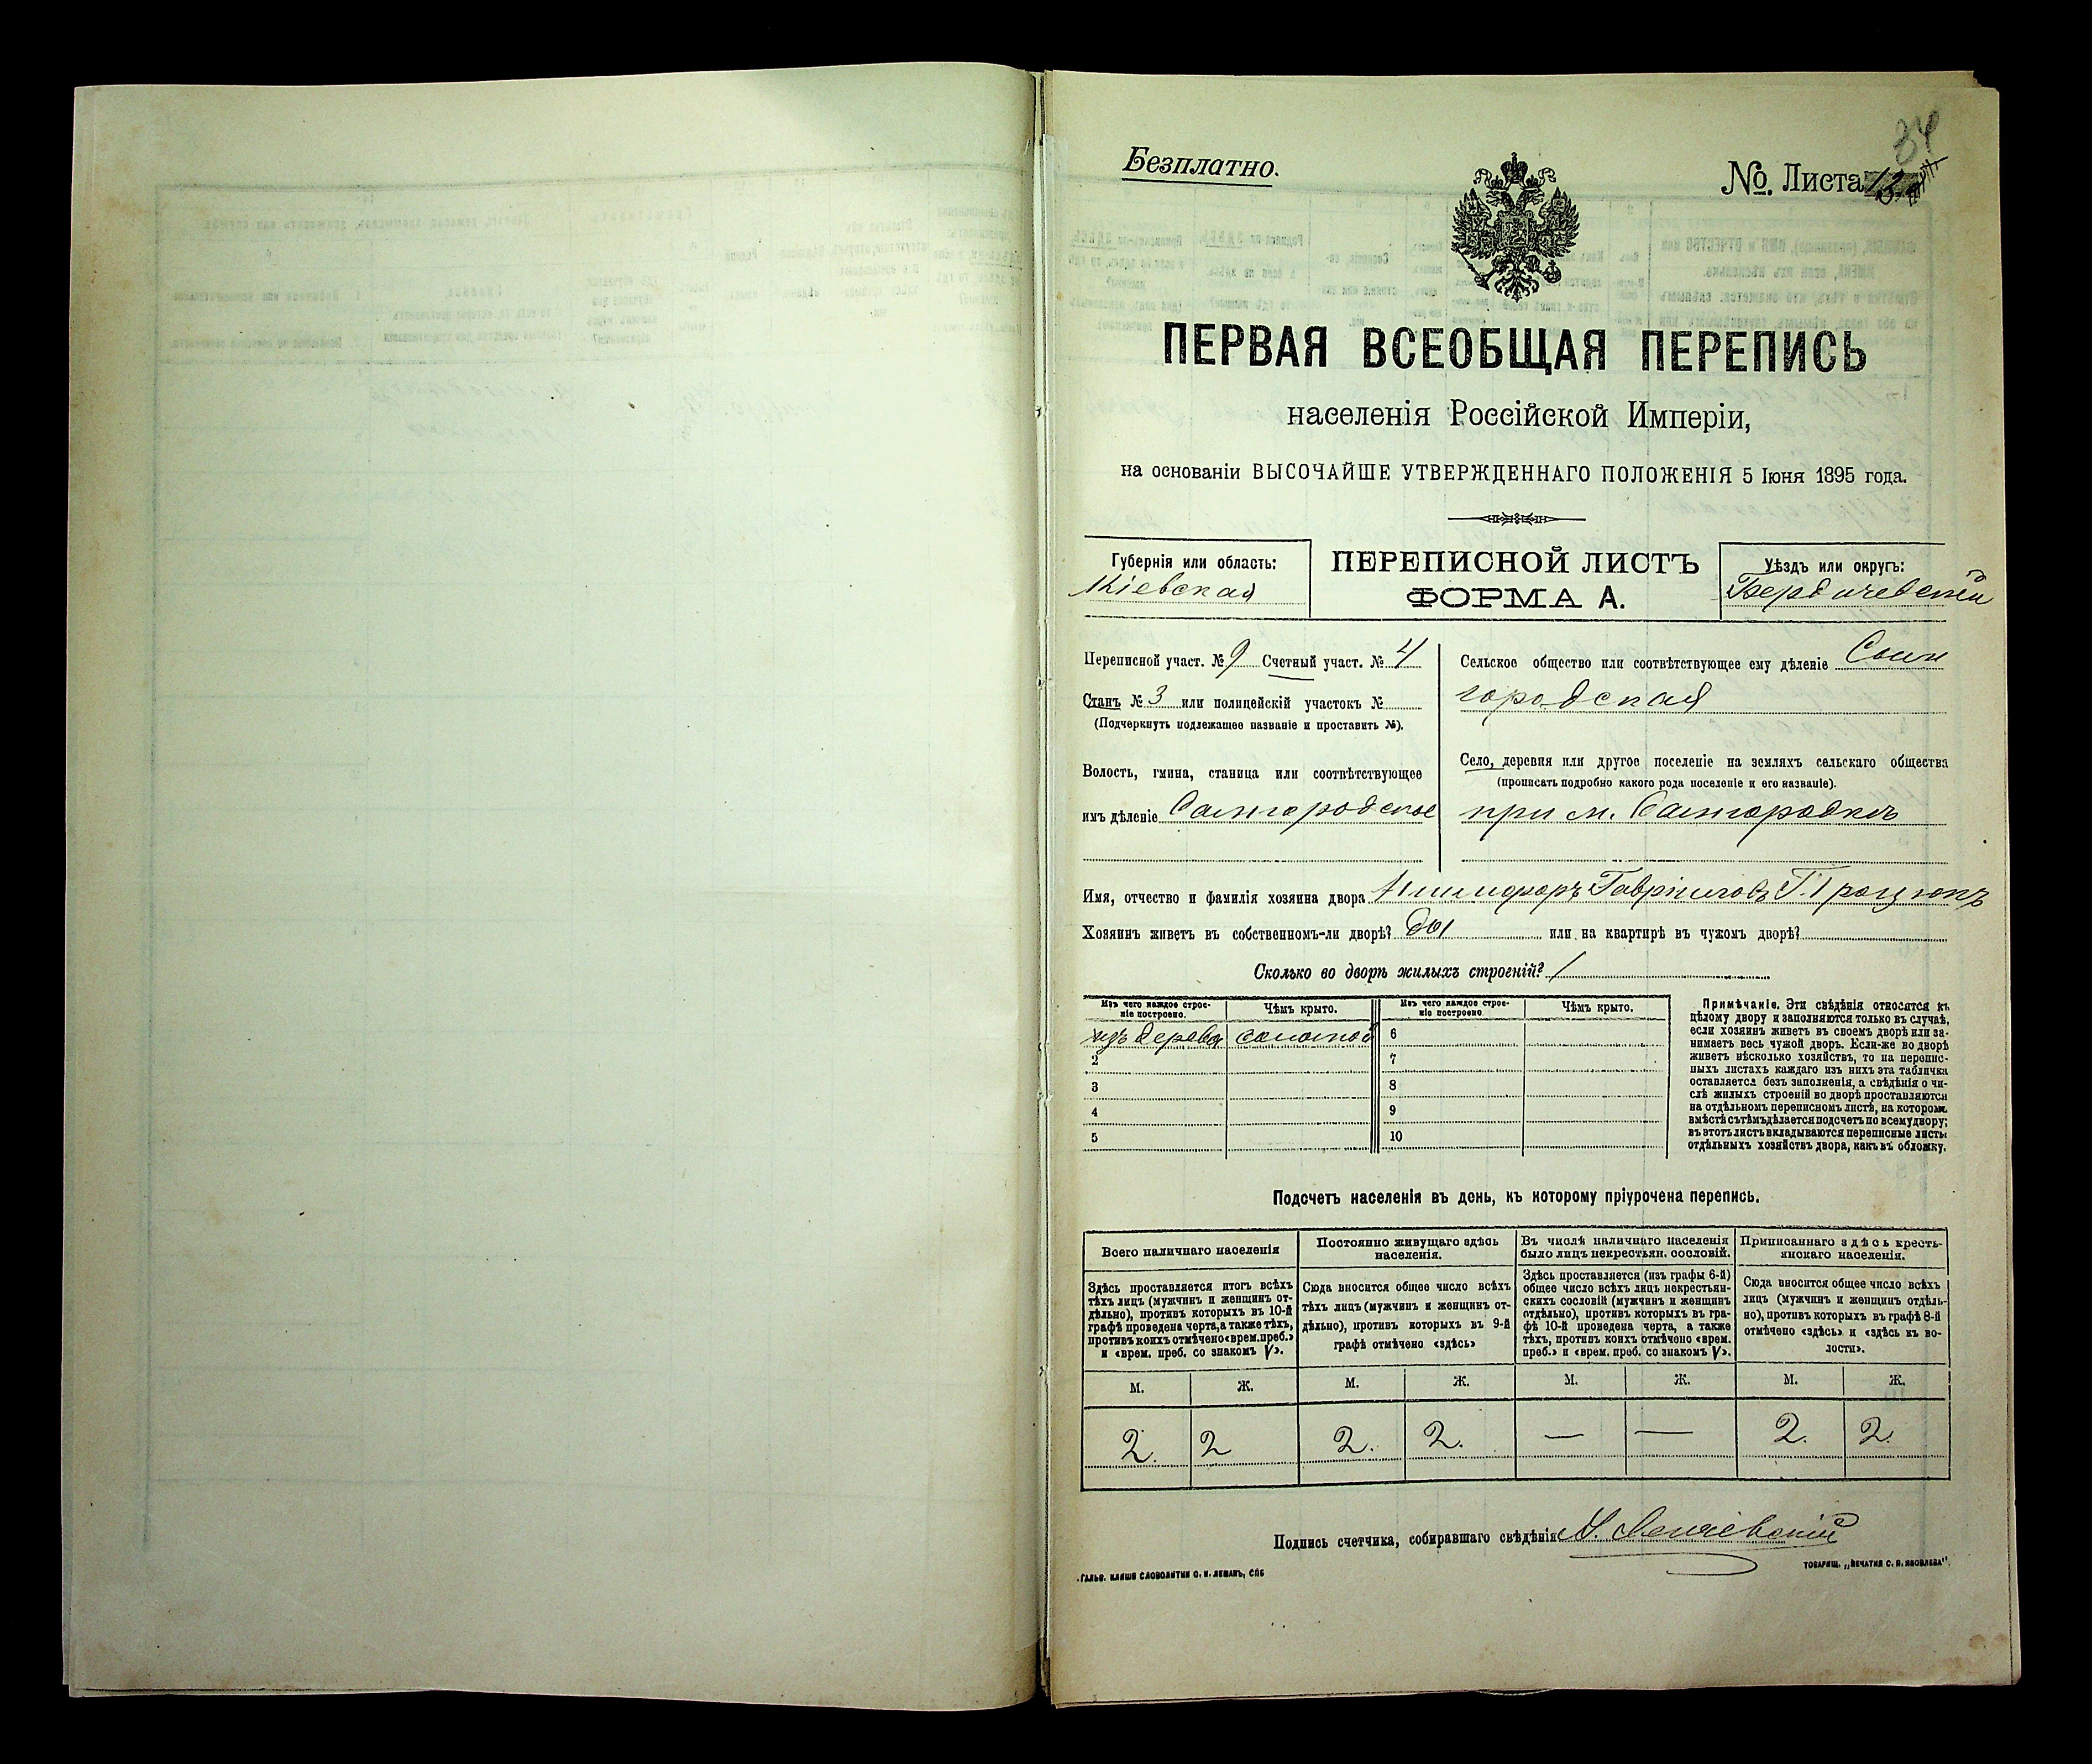 34
Безплатно.
№. Листа 13
ПЕРВАЯ ВСЕОБЩАЯ ПЕРЕПИСЬ
населенія Россійской Имперіи,
на основаніи ВЫСОЧАЙШЕ УТВЕРЖДЕННАГО ПОЛОЖЕНІЯ 5 Іюня 1895 года.
Губернія или область:
Кіевская
ПЕРЕПИСНОЙ ЛИСТЪ
ФОРМА А.
Уѣздъ или округъ:
Бердичевскій
Переписной участ. № 9 Счетный участ. № 4
Станъ № 3 или полицейскій участокъ №
(Подчеркнуть подлежащее названіе и проставить №).
Волость, гмина, станица или соотвѣтствующее
имъ дѣленіе Самгородское
Сельское общество или соотвѣтствующее ему дѣленіе Сам
городская
Село, деревня или другое поселеніе на земляхъ сельскаго общества
(прописать подробно какого рода поселеніе и его названіе).
при м. Самгородкѣ
Имя, отчество и фамилія хозяина двора Никифоръ Гавріиловъ
Хозяинъ живетъ въ собственномъ-ли дворѣ? да или на квартирѣ въ чужомъ дворѣ?
Сколько во дворѣ жилыхъ строеній? 1
Изъ чего каждое строе-
ніе построено.
Чѣмъ крыто.
Изъ чего каждое строе-
ніе построено
Чѣмъ крыто.
изъ дерева соломой 6
2 7
3 8
4 9
5 10
Примѣчаніе. Эти свѣдѣнія относятся къ
цѣлому двору и заполняются только въ случаѣ,
если хозяинъ живетъ въ своемъ дворѣ или за-
нимаетъ весь чужой дворъ. Если-же во дворѣ
живетъ нѣсколько хозяйствъ, то на перепис-
ныхъ листахъ каждаго изъ нихъ эта табличка
оставляется безъ заполненія, а свѣдѣнія о чи-
слѣ жилыхъ строеній во дворѣ проставляются
на отдѣльномъ переписномъ листѣ, на которомъ
вмѣстѣ съ тѣмъ дѣлается подсчетъ по всему двору;
въ этотъ листъ вкладываются переписные листы
отдѣльныхъ хозяйствъ двора, какъ въ обложку.
Подсчетъ населенія въ день, къ которому пріурочена перепись.
Всего наличнаго населенія
Здѣсь проставляется итогъ всѣхъ
тѣхъ лицъ (мужчинъ и женщинъ от-
дѣльно), противъ которыхъ въ 10-й
графѣ проведена черта, а также тѣхъ,
противъ коихъ отмѣчено «врем. преб.»
и «врем. преб. со знакомъ V».
Постоянно живущаго здѣсь
населенія.
Сюда вносится общее число всѣхъ
тѣхъ лицъ (мужчинъ и женщинъ от-
дѣльно), противъ которыхъ въ 9-й
графѣ отмѣчено «здѣсь»
Въ числѣ наличнаго населенія
было лицъ некрестьян. сословій.
Здѣсь проставляется (изъ графы 6-й)
общее число всѣхъ лицъ некрестьян-
скихъ сословій (мужчинъ и женщинъ
отдѣльно), противъ которыхъ въ гра-
фѣ 10-й проведена черта, а также
тѣхъ, противъ коихъ отмѣчено «врем.
преб.» и «врем. преб. со знакомъ V».
Приписаннаго здѣсь кресть-
янскаго населенія.
Сюда вносится общее число всѣхъ
лицъ (мужчинъ и женщинъ отдѣль-
но), противъ которыхъ въ графѣ 8-й
отмѣчено «здѣсь» и «здѣсь въ во-
лости».
М. Ж. М. Ж. М. Ж. М. Ж.
2. 2 2. 2. — — 2. 2.
Подпись счетчика, собиравшаго свѣдѣнія
ГАЛЬВ. КЛИШЕ СЛОВОЛИТНИ О. И. ЛЕМАНЪ, СПБ
ТОВАРИЩ. „ПЕЧАТНЯ С. П. ЯКОВЛЕВА".